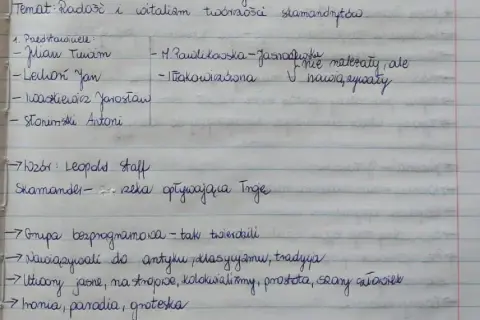 Temat: Radość i witalizm twórczości skamandrytów.
1. Przedstawiciele:
- Julian Tuwim
- Lechoń Jan
- Iwaszkiewicz Jarosław
- Słonimski Antoni
- M. Pawlikowska - Jasnorzewska
- Iłłakowiczówna
nie należały, ale
nawiązywały
→ Wzór: Leopold Staff
Skamander - rzeka opływająca Troję
→ Grupa bezprogramowa - tak twierdzili
→ Nawiązywali do antyku, klasycyzmu, tradycja
→ Utwory jasne, nastrojowe, kolokwializmy, prostota, szary człowiek
→ Ironia, parodia, groteska